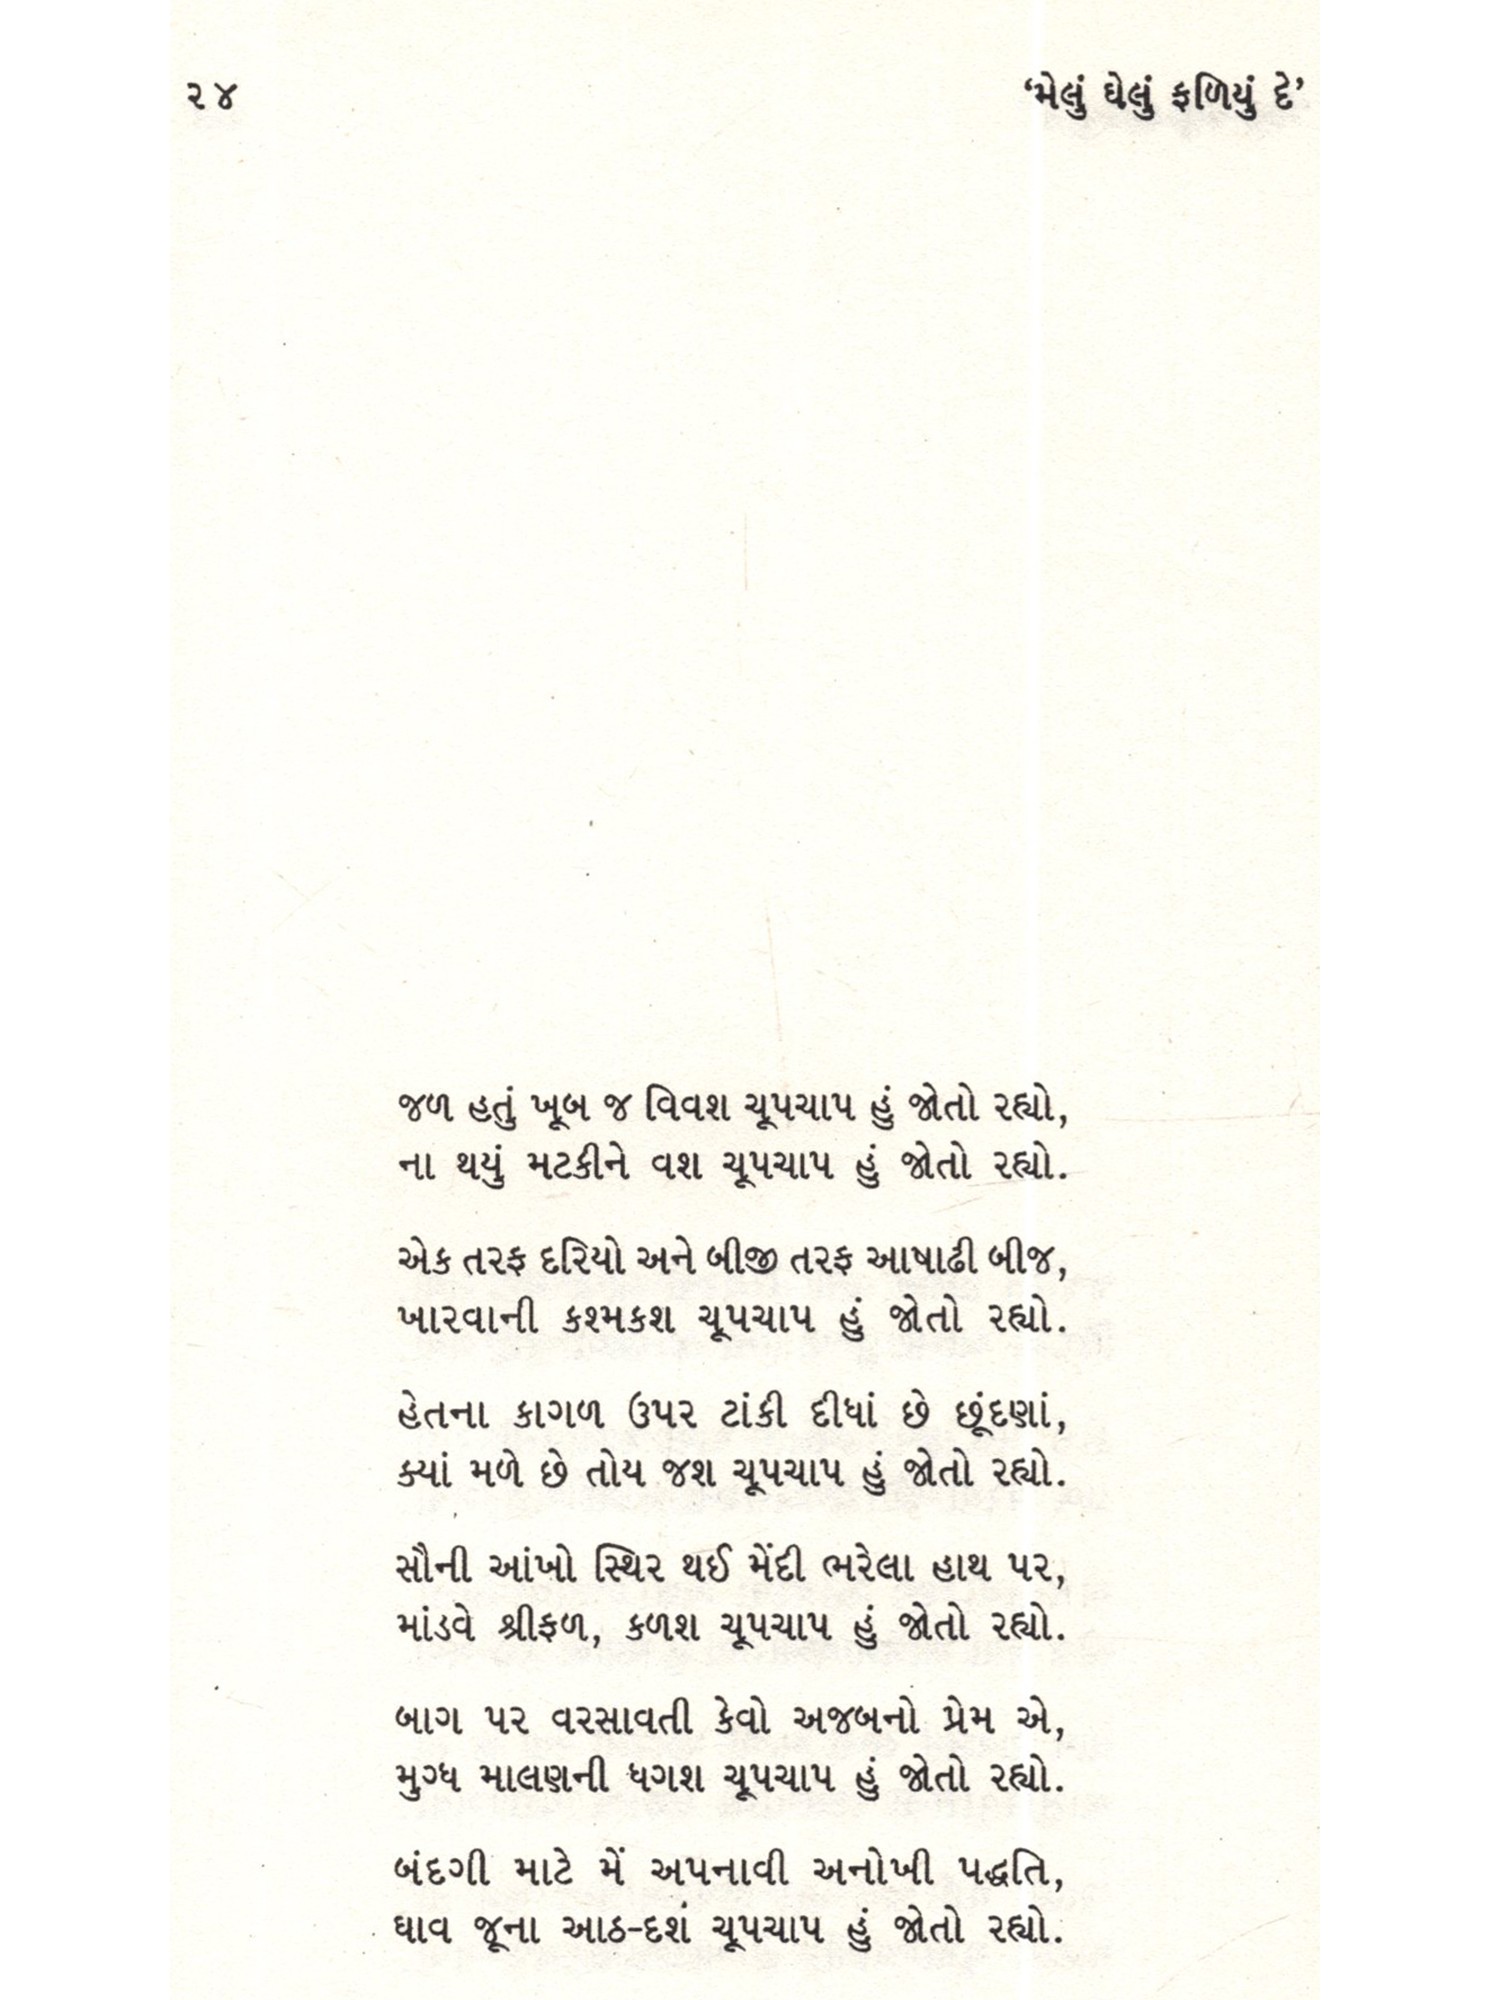 ૨૪ ‘મેલું ઘેલું ફળિયું દે’
જળ હતું ખૂબ જ વિવશ ચૂપચાપ હું જોતો રહ્યો,
ના થયું મટકીને વશ ચૂપચાપ હું જોતો રહ્યો.
એક તરફ દરિયો અને બીજી તરફ આષાઢી બીજ,
ખારવાની કશ્મકશ ચૂપચાપ હું જોતો રહ્યો.
હેતના કાગળ ઉપર ટાંકી દીધાં છે છૂંદણાં,
ક્યાં મળે છે તોય જશ ચૂપચાપ હું જોતો રહ્યો.
સૌની આંખો સ્થિર થઈ મેંદી ભરેલા હાથ પર,
માંડવે શ્રીફળ, કળશ ચૂપચાપ હું જોતો રહ્યો.
બાગ પર વરસાવતી કેવો અજબનો પ્રેમ એ,
મુગ્ધ માલણની ધગશ ચૂપચાપ હું જોતો રહ્યો.
બંદગી માટે મેં અપનાવી અનોખી પદ્ધતિ,
ઘાવ જૂના આઠ-દશ ચૂપચાપ હું જોતો રહ્યો.